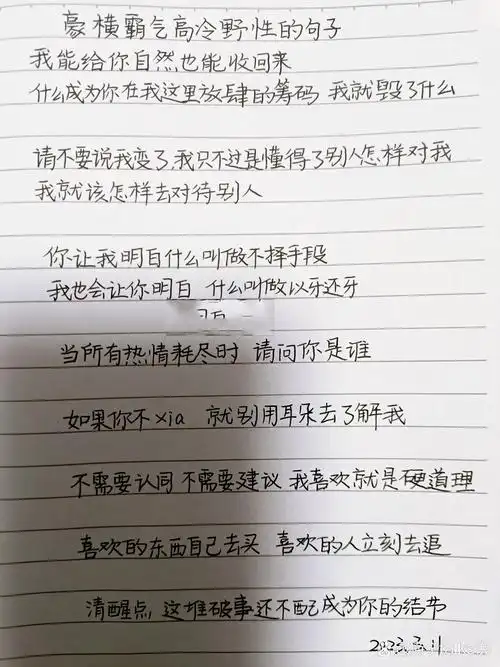 豪横霸气高冷野性的句子
我能给你自然也能收回来
什么成为你在我这里放肆的筹码 我就毁了什么
请不要说我变了,我只不过是懂得了别人怎样对我
我就该怎样去对待别人
你让我明白什么叫做不择手段
我也会让你明白 什么叫做以牙还牙
当所有热情耗尽时 请问你是谁
如果你不xia 就别用耳朵去了解我
不需要认同 不需要建议 我喜欢就是硬道理
喜欢的东西自己去买 喜欢的人立刻去追
清醒点,这堆破事还不配成为你的结节
2023.3.11